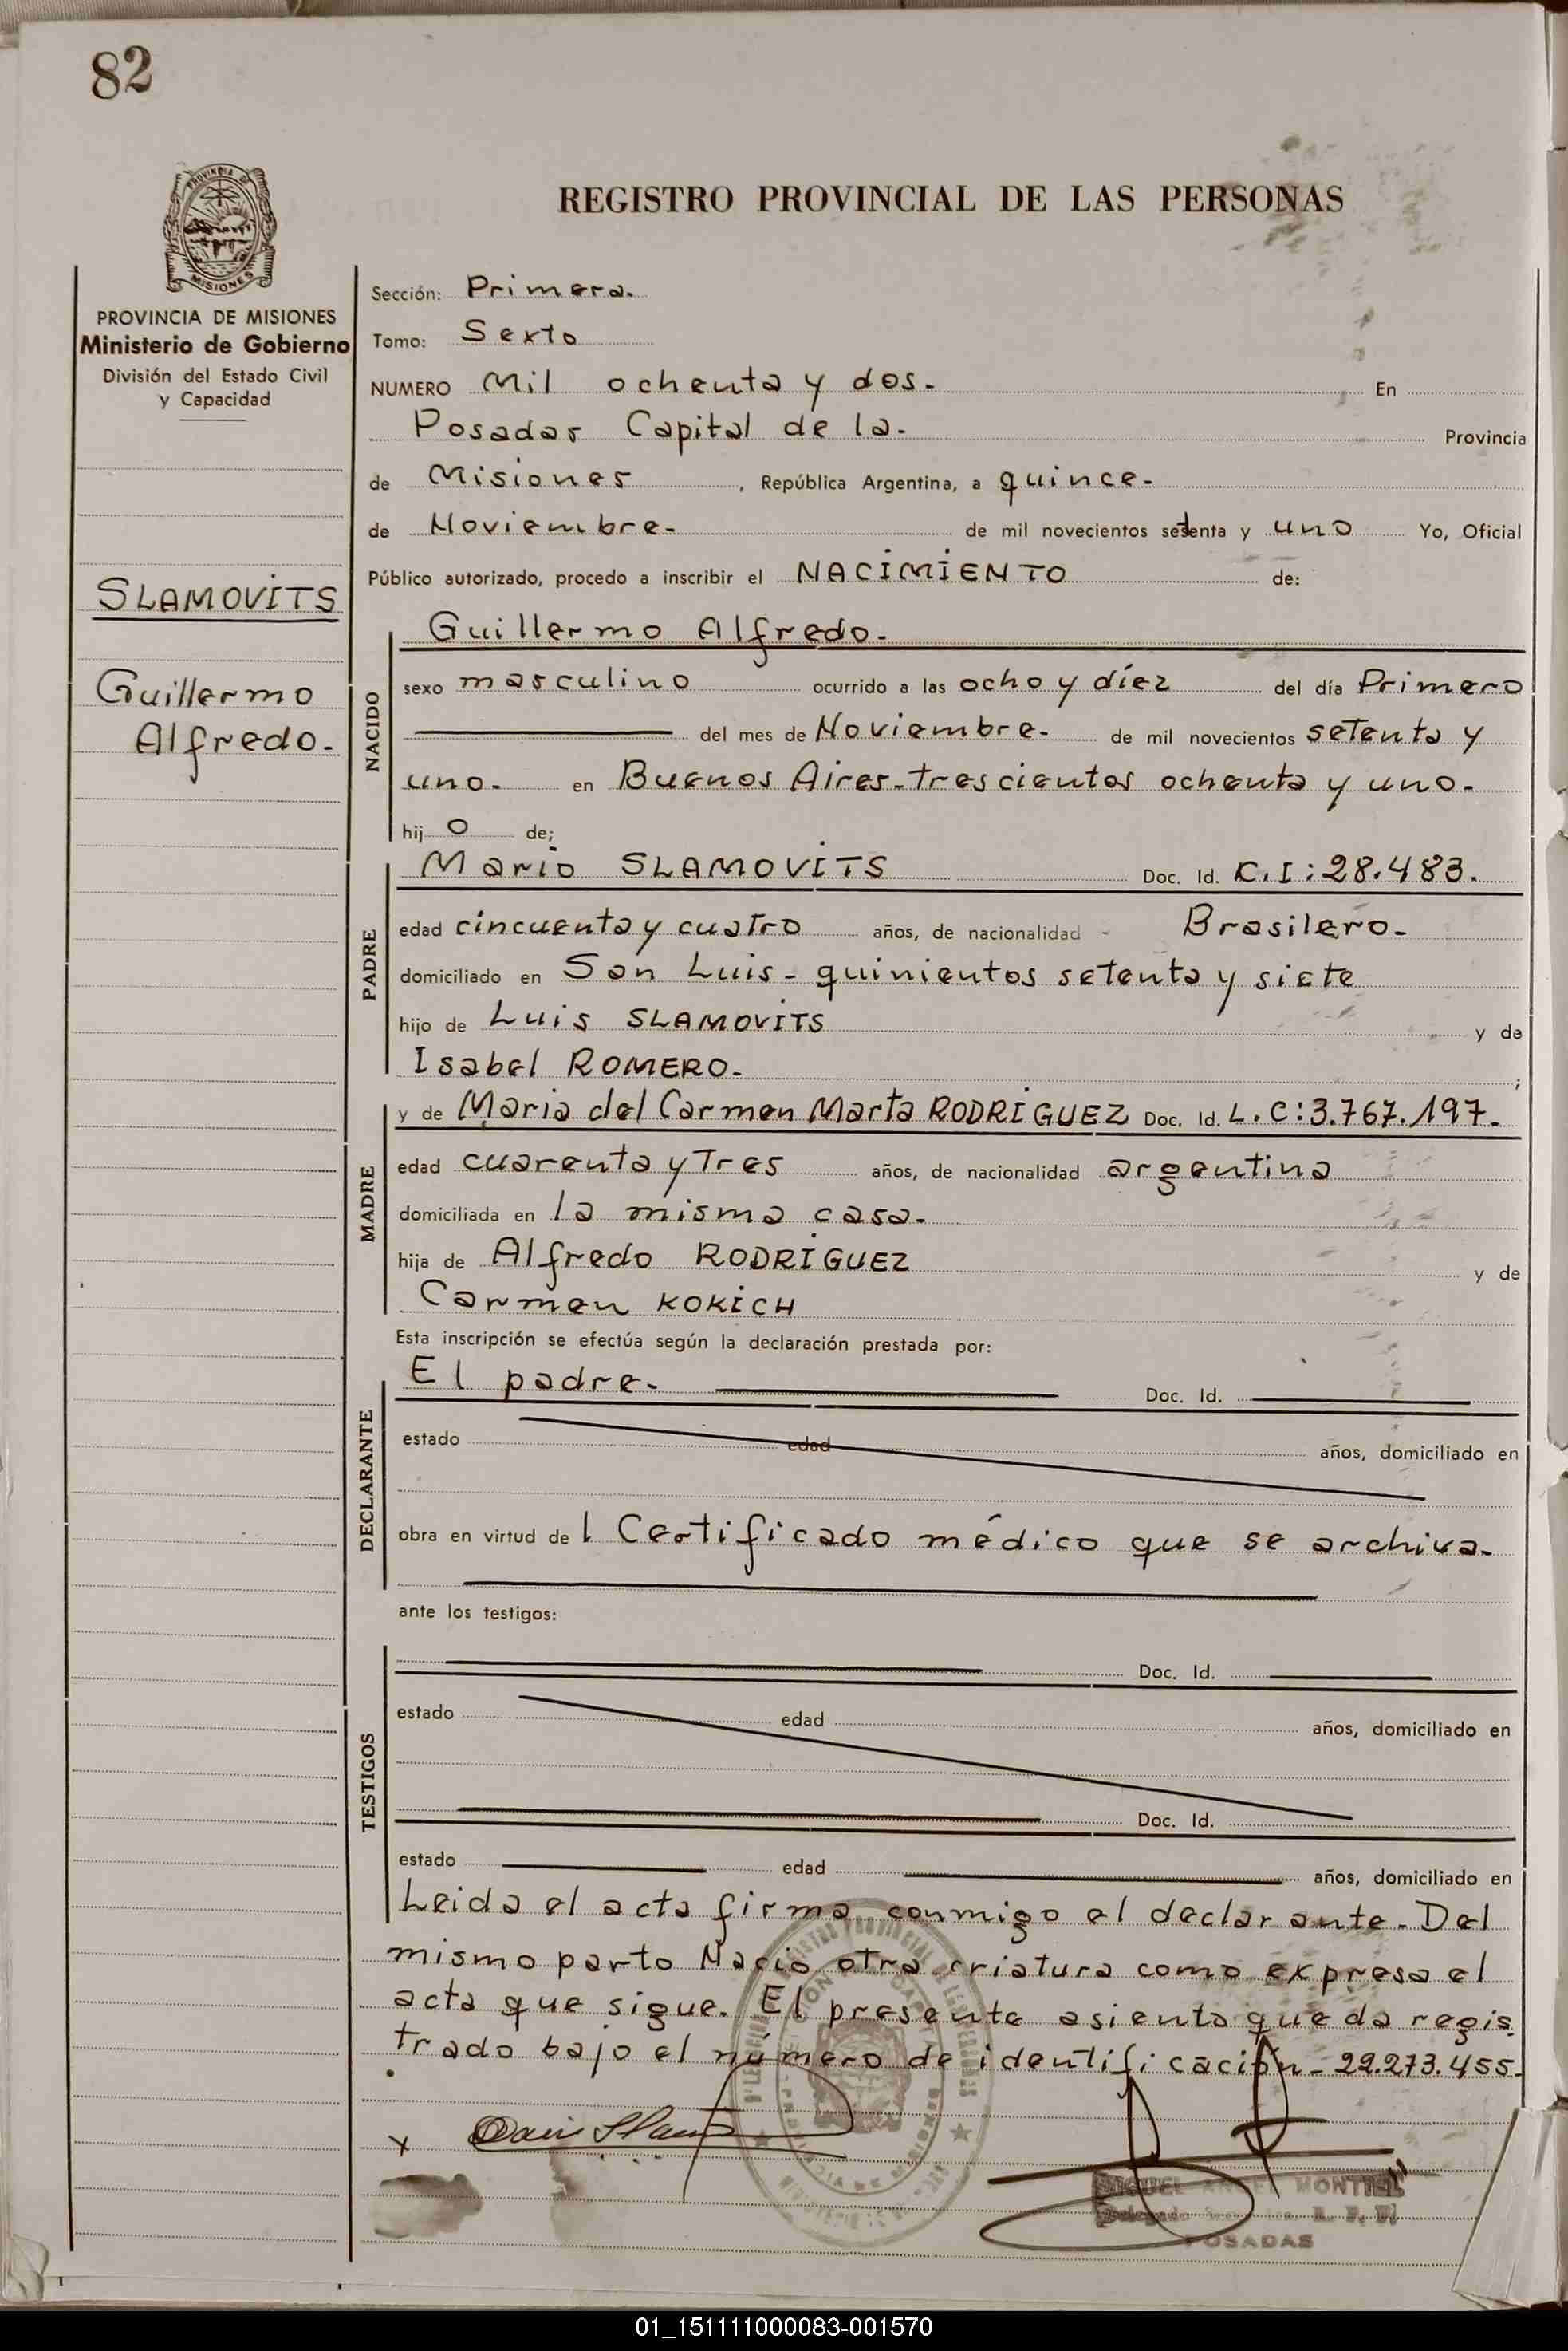 82
PROVINCIA DE MISIONES
PROVINCIA DE MISIONES
Ministerio de Gobierno
División del Estado Civil
y Capacidad
SLAMOVITS
Guillermo
Alfredo.
REGISTRO PROVINCIAL DE LAS PERSONAS
Sección: Primera.
Tomo: Sexto
NUMERO Mil ochenta y dos. En
Posadas Capital de la. Provincia
de Misiones, República Argentina, a quince.
de Noviembre. de mil novecientos setenta y uno Yo, Oficial
Público autorizado, procedo a inscribir el NACIMIENTO de:
NACIDO
Guillermo Alfredo.
sexo masculino ocurrido a las ocho y díez del día Primero
del mes de Noviembre. de mil novecientos setenta y
uno. en Buenos Aires-trescientos ochenta y uno.
hijo de;
PADRE
Mario SLAMOVITS Doc. Id. C.I:28.483.
edad cincuenta y cuatro años, de nacionalidad - Brasilero.
domiciliado en San Luis - quinientos setenta y siete
hijo de Luis SLAMOVITS y de
Isabel ROMERO. ;
MADRE
y de Maria del Carmen Marta RODRIGUEZ Doc. Id. L.C:3.767.197.
edad cuarenta y Tres años, de nacionalidad argentina
domiciliada en la misma casa.
hija de Alfredo RODRIGUEZ y de
Carmen KOKICH
Esta inscripción se efectúa según la declaración prestada por:
DECLARANTE
El padre. Doc. Id.
estado edad años, domiciliado en
obra en virtud del Certificado médico que se archiva.
ante los testigos:
TESTIGOS
Doc. Id.
estado edad años, domiciliado en
Doc. Id.
estado edad años, domiciliado en
Leida el acta firma conmigo el declarante. Del
mismo parto Nacio otra criatura como expresa el
acta que sigue. El presente asiento queda regis
trado bajo el número de identificación - 22.273.455.
x
MIGUEL ANGEL MONTIEL
POSADAS
01_151111000083-001570